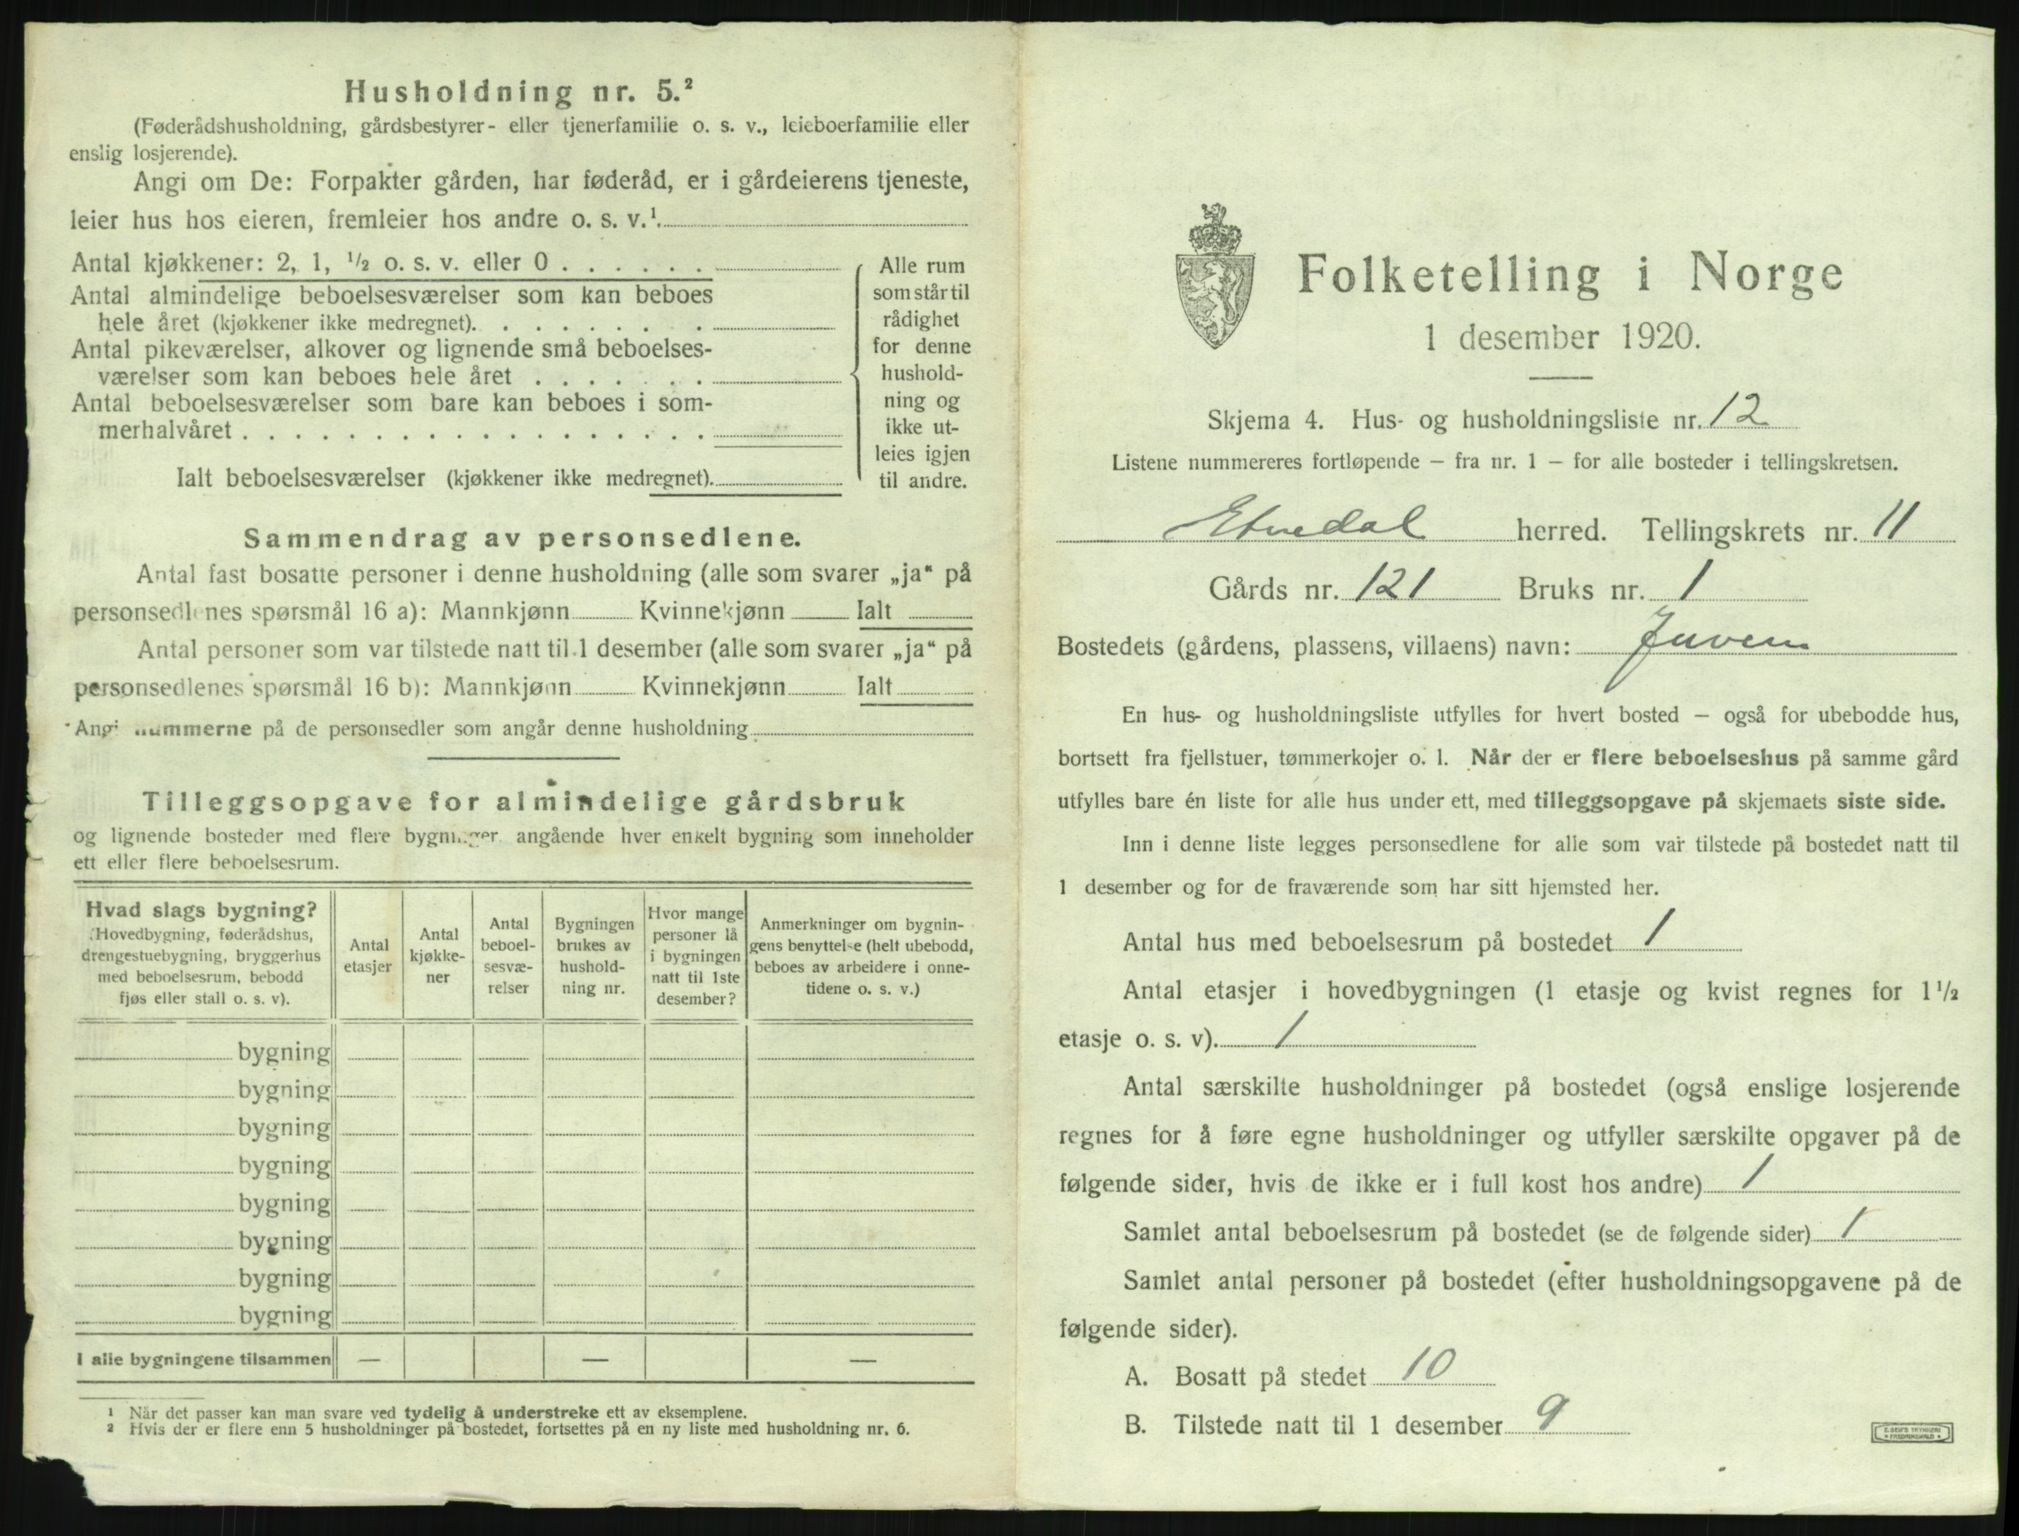 Husholdning nr. 5.²
(Føderådshusholdning, gårdsbestyrer- eller tjenerfamilie o. s. v., leieboerfamilie eller
enslig losjerende).
Angi om De: Forpakter gården, har føderåd, er i gårdeierens tjeneste,
leier hus hos eieren, fremleier hos andre o. s. v.¹.
Antal kjøkkener: 2, 1, ½ o. s. v. eller 0 . . . . . .
Antal almindelige beboelsesværelser som kan beboes
hele året (kjøkkener ikke medregnet). . . . . . . .
Antal pikeværelser, alkover og lignende små beboelses-
værelser som kan beboes hele året . . . . . . .
Antal beboelsesværelser som bare kan beboes i som-
merhalvåret . . . . . . . . . . . . . . . . . .
Ialt beboelsesværelser (kjøkkener ikke medregnet).
Alle rum
som står til
rådighet
for denne
hushold-
ning og
ikke ut-
leies igjen
til andre.
Sammendrag av personsedlene.
Antal fast bosatte personer i denne husholdning (alle som svarer „ja“ på
personsedlenes spørsmål 16 a): Mannkjønn Kvinnekjønn Ialt
Antal personer som var tilstede natt til 1 desember (alle som svarer „ja“ på
personsedlenes spørsmål 16 b): Mannkjønn Kvinnekjønn Ialt
Angi nummerne på de personsedler som angår denne husholdning
Tilleggsopgave for almindelige gårdsbruk
og lignende bosteder med flere bygninger, angående hver enkelt bygning som inneholder
ett eller flere beboelsesrum.
Hvad slags bygning?
(Hovedbygning, føderådshus,
drengestuebygning, bryggerhus
med beboelsesrum, bebodd
fjøs eller stall o. s. v).
Antal
etasjer
Antal
kjøkke-
ner
Antal
beboel-
sesvæ-
relser
Bygningen
brukes av
hushold-
ning nr.
Hvor mange
personer lå
i bygningen
natt til 1ste
desember?
Anmerkninger om bygnin-
gens benyttelse (helt ubebodd,
beboes av arbeidere i onne-
tidene o. s. v.)
bygning
bygning
bygning
bygning
bygning
bygning
bygning
bygning
I alle bygningene tilsammen — — —
¹ Når det passer kan man svare ved tydelig å understreke ett av eksemplene.
² Hvis der er flere enn 5 husholdninger på bostedet, fortsettes på en ny liste med husholdning nr. 6.
Folketelling i Norge
1 desember 1920.
Skjema 4. Hus- og husholdningsliste nr. 12
Listene nummereres fortløpende – fra nr. 1 – for alle bosteder i tellingskretsen.
Etnedal herred. Tellingskrets nr. 11
Gårds nr. 121 Bruks nr. 1
Bostedets (gårdens, plassens, villaens) navn: Juven
En hus- og husholdningsliste utfylles for hvert bosted – også for ubebodde hus,
bortsett fra fjellstuer, tømmerkojer o. l. Når der er flere beboelseshus på samme gård
utfylles bare én liste for alle hus under ett, med tilleggsopgave på skjemaets siste side.
Inn i denne liste legges personsedlene for alle som var tilstede på bostedet natt til
1 desember og for de fraværende som har sitt hjemsted her.
Antal hus med beboelsesrum på bostedet 1
Antal etasjer i hovedbygningen (1 etasje og kvist regnes for 1½
etasje o. s. v). 1
Antal særskilte husholdninger på bostedet (også enslige losjerende
regnes for å føre egne husholdninger og utfyller særskilte opgaver på de
følgende sider, hvis de ikke er i full kost hos andre) 1
Samlet antal beboelsesrum på bostedet (se de følgende sider) 1
Samlet antal personer på bostedet (efter husholdningsopgavene på de
følgende sider).
A. Bosatt på stedet 10
B. Tilstede natt til 1 desember 9